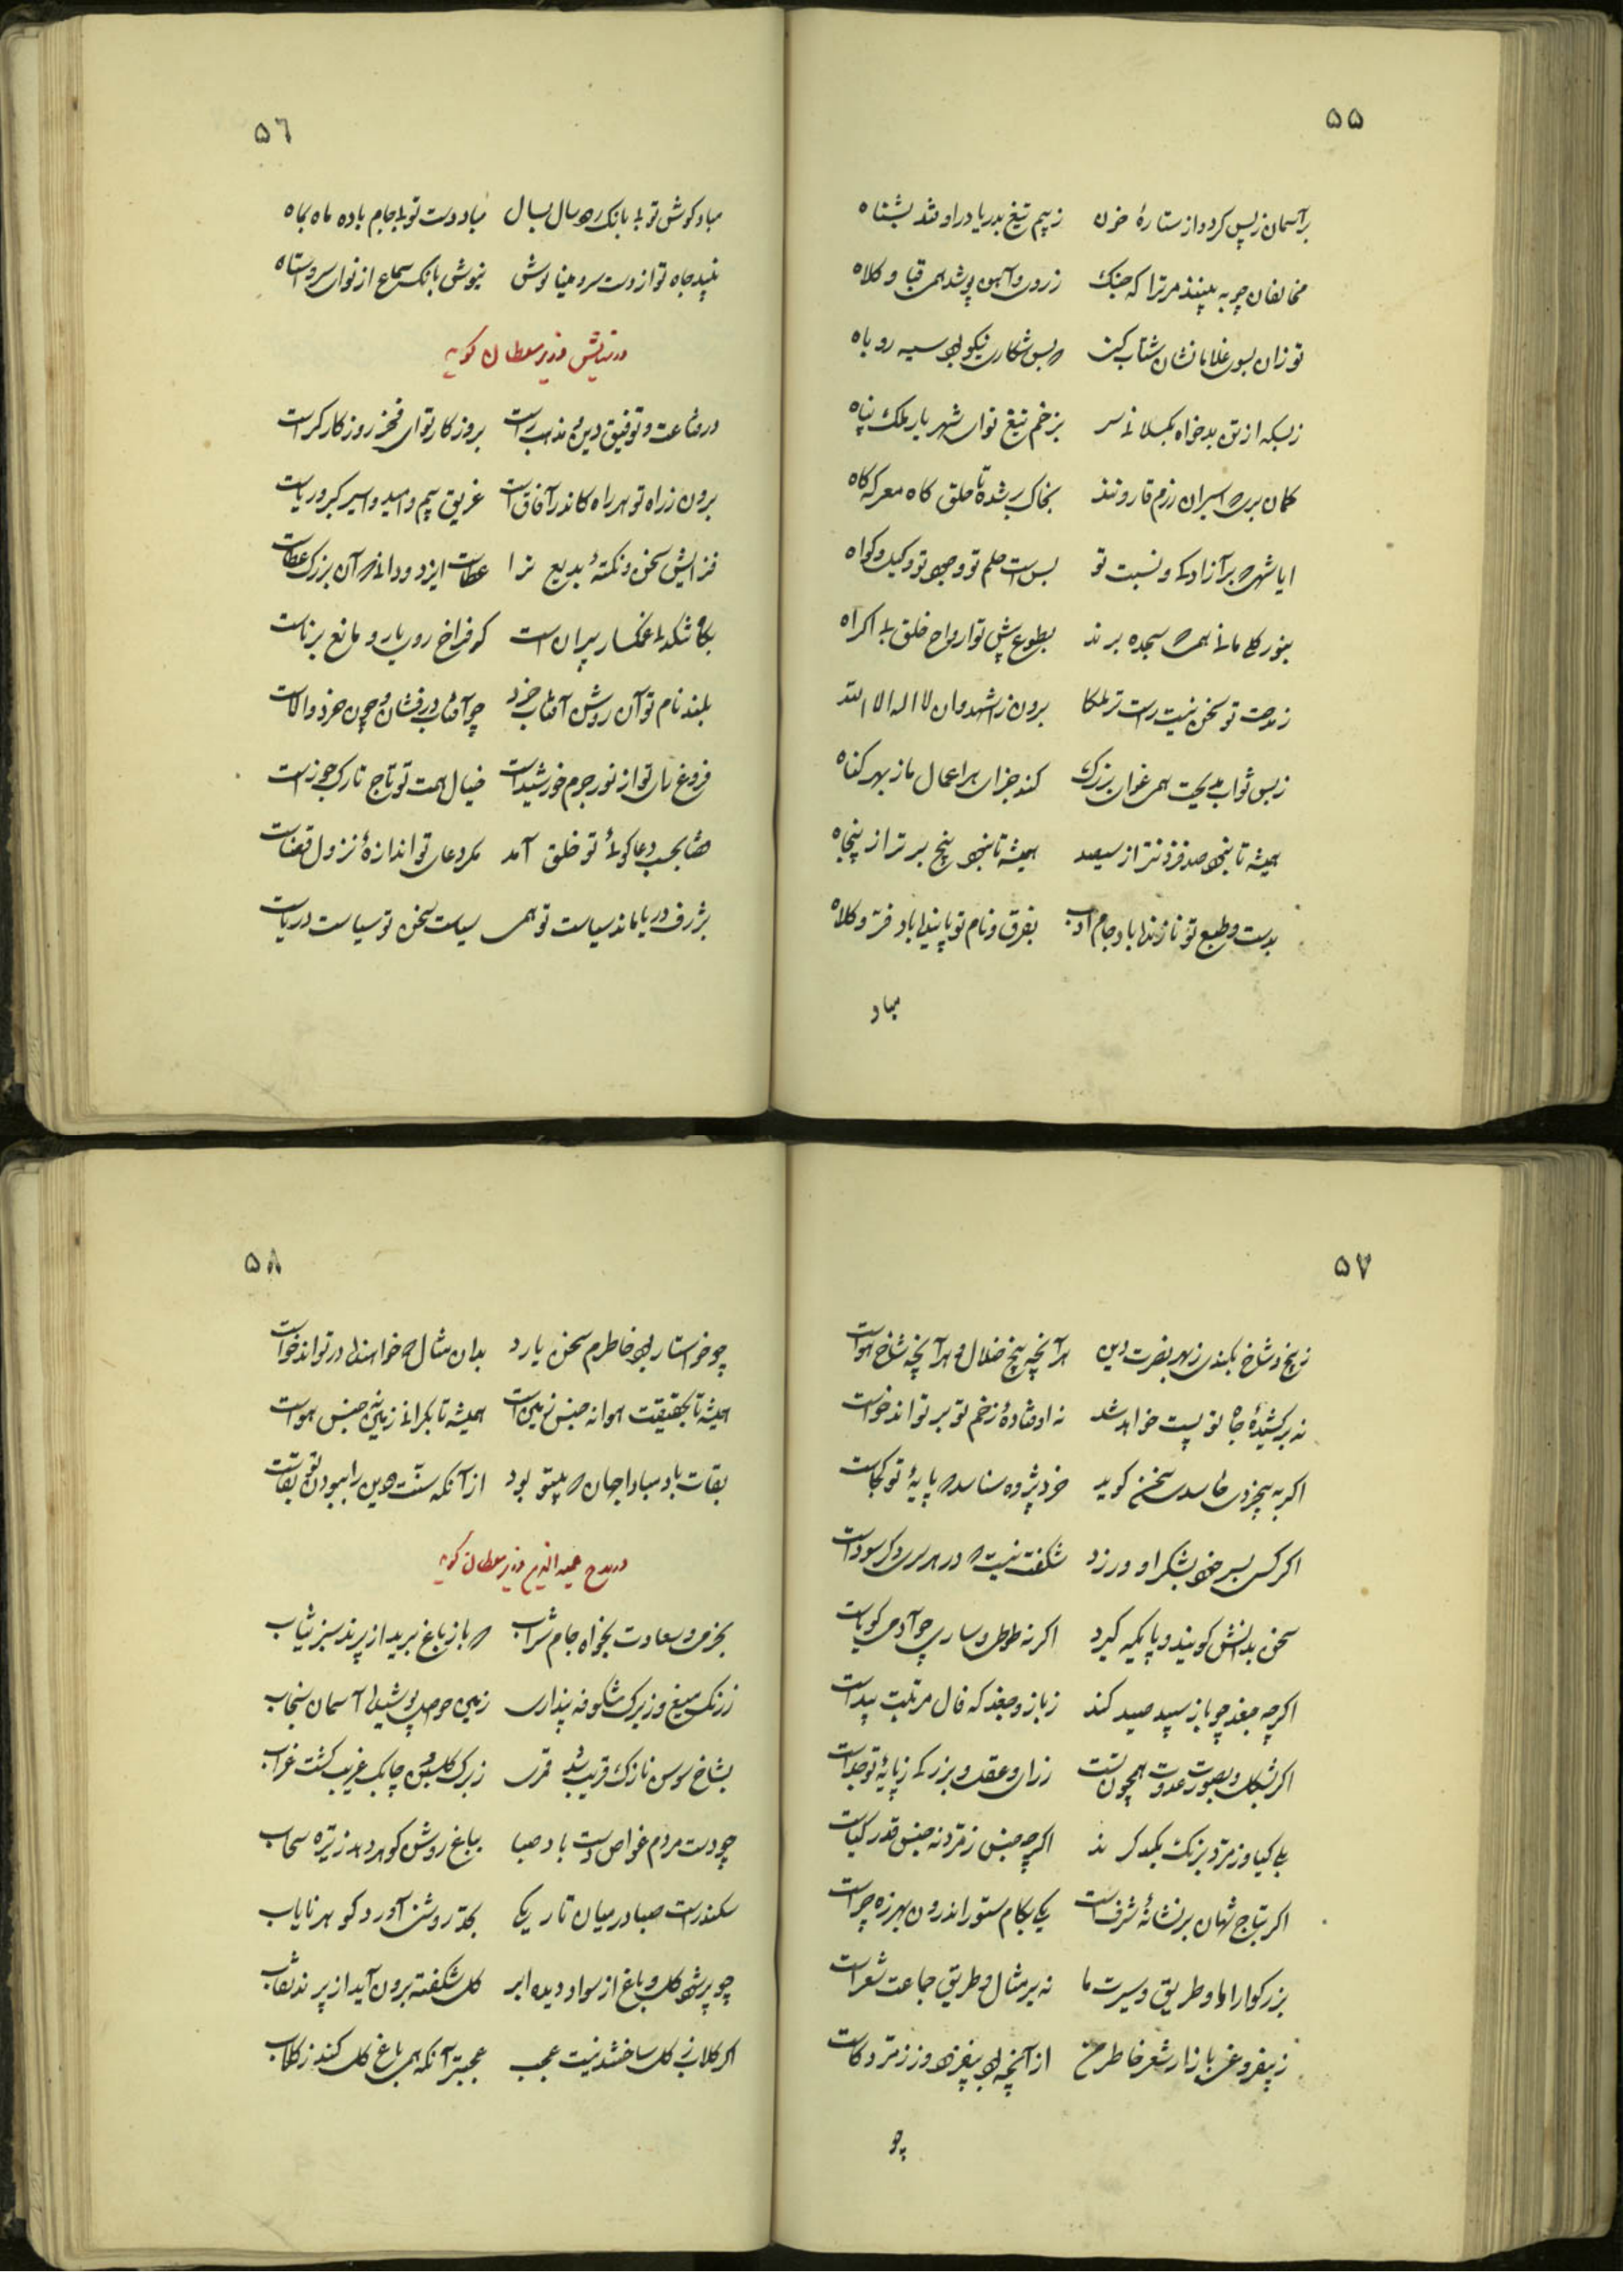 ۵۵
برآسمان ز پس گرد و از ستارهٔ خون ز بیم تیغ بدریا در اوفتد بشناه
مخالفان چو به بینند مر ترا که جنگ ز روی و آهن پوشد همی قبا و کلاه
تو زان بسوی غلامانشان شتاب کنی که بس شکاری نیکو بود سیه روباه
ز بسکه از تن بدخواه بگسلانی سر بزخم تیغ تو ای شهریار ملک پناه
گمان بری که اسیران رزم قارونند بخاک بر شده تا حلق گاه معرکه گاه
ایا شهی که بر آزادگی و نسبت تو بس است حلم تو و جود تو وکیل و گواه
بنور کلک مانی همی که سجده برند بطوع پیش تو ارواح خلق بی اکراه
ز مدحت تو سخن نیست راست تر ملکا برون ز اشهد و ان لا اله الا الله
ز بس ثواب مدیحت همی غوان بزرگ کند جزای بد اعمال ما ز بهر گناه
همیشه تا نبود صد فزونتر از سیصد همیشه تا نبود پنج برتر از پنجاه
بدست و طبع تو نازنده باد جام ادب بفرق و نام تو پاینده باد فرّ و کلاه
مباد
۵٦
مباد گوش تو بی بانگ رود سال بسال مباد دست تو بی جام باده ماه بماه
نبید جاه تو از دست سرو مینا وش نیوش بانگ سماع از نوای سروستاه
در ستایش وزیر سلطان گوید
در قناعت و توفیق دین و مذهب راست بروزگار تو ای فخر روزگار کراست
برون ز راه تو هر راه کاندر آفاق است غریق بیم و امید و اسیر کبر و ریاست
فزایش سخن و نکتهٔ بدیع ترا عطاست ایزد و دانی که آن بزرگ عطاست
بکاشکه غمگسار پیران است که فراخ روی یار و مانع برناست
بلند نام تو آن روشن آفتاب خرد چو آفتاب درفشان و چون خرد والاست
فروغ رای تو از نور جرم خورشید است خیال همت تو تاج تارک جوزاست
قضا بحسب دعاگوی تو خلق آمد مگر دعای تو اندازهٔ نزول قضاست
بژرف دریا ماند سیاست تو همی سیاست سخن تو سیاست دریاست
۵۷
ز بیخ و شاخ بکندی ز بهر نصرت دین هر آنچه بیخ ضلال و هر آنچه شاخ هواست
نه برکشیدهٔ جاه تو پست خواهد شد نه اوفتادهٔ زخم تو بر تواند خواست
اگر به بیخردی حاسدی سخن گوید خرد پژوه شناسد که پایهٔ تو کجاست
اگر کسی بسر خود بشکر او ورزد شگفت نیست که در هر سری دگر سوداست
سخن بدانش گویند و پایگه گیرد اگر نه طوطی و ساری چو آدمی گویاست
اگر چه جغد چو باز سپید صید کند ز باز و جغد که فال مرتبت پیداست
اگر بشکل و بصورت عدوت همچون تست ز رای و عقل و بزرگی ز پایهٔ تو جداست
یکی گیا و زمرد برنگ یکدگرند اگر چه جنس زمرد نه جنس قدر گیاست
اگر بتاج شهان بر نشانهٔ شرف است یکی بکام ستور اندرون بهرزه چراست
بزرگوارا ما و طریق و سیرت ما نه بر مثال و طریق جماعت شعراست
ز بیفروغی بازار شعر خاطر من از آنچه بود بیفزود و ز زمرد کاست
چو
۵۸
چو خواستار بود خاطرم سخن یارد بدان مثال که خواهند در تواند خواست
همیشه تا بحقیقت هوا نه جنس زمین است همیشه تا بگرانی زمین نه جنس هواست
بقات باد مبادا جهان که بیتو بود از آنکه سنّت و دین را ببودن تو بقاست
در مدح عمید الدین وزیر سلطان گوید
بخرمی و سعادت بخواه جام شراب که باز باغ برید از پرند سبز ثیاب
ز رنگ میغ و ز برگ شکوفه پنداری زمین حواصل پوشید و آسمان سنجاب
بشاخ سوسن نازک قریب شد قمری ز برگ گلبن چابک غریب گشت غراب
چو دست مردم غواص گشت باد صبا بباغ روشن گوهر دهد ز تیره سحاب
سکندر است صبا در میان تاریکی بکه روشن آورد گوهر نایاب
چو پر شود گل و باغ از سواد دیده ابر گل شکفته برون آید از پرند نقاب
اگر گلاب ز گل ساختند نیست عجب عجبتر آنکه همی باغ گل کند ز گلاب